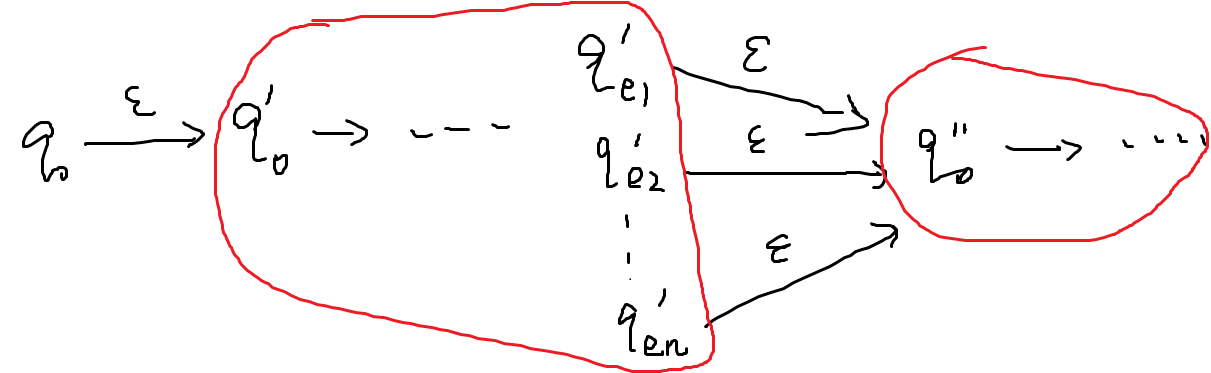 q₀ →ε q₀' → - - - -
q'ₑ₁
q'ₑ₂
q'ₑₙ
ε
ε
ε
q₀'' → - - - -